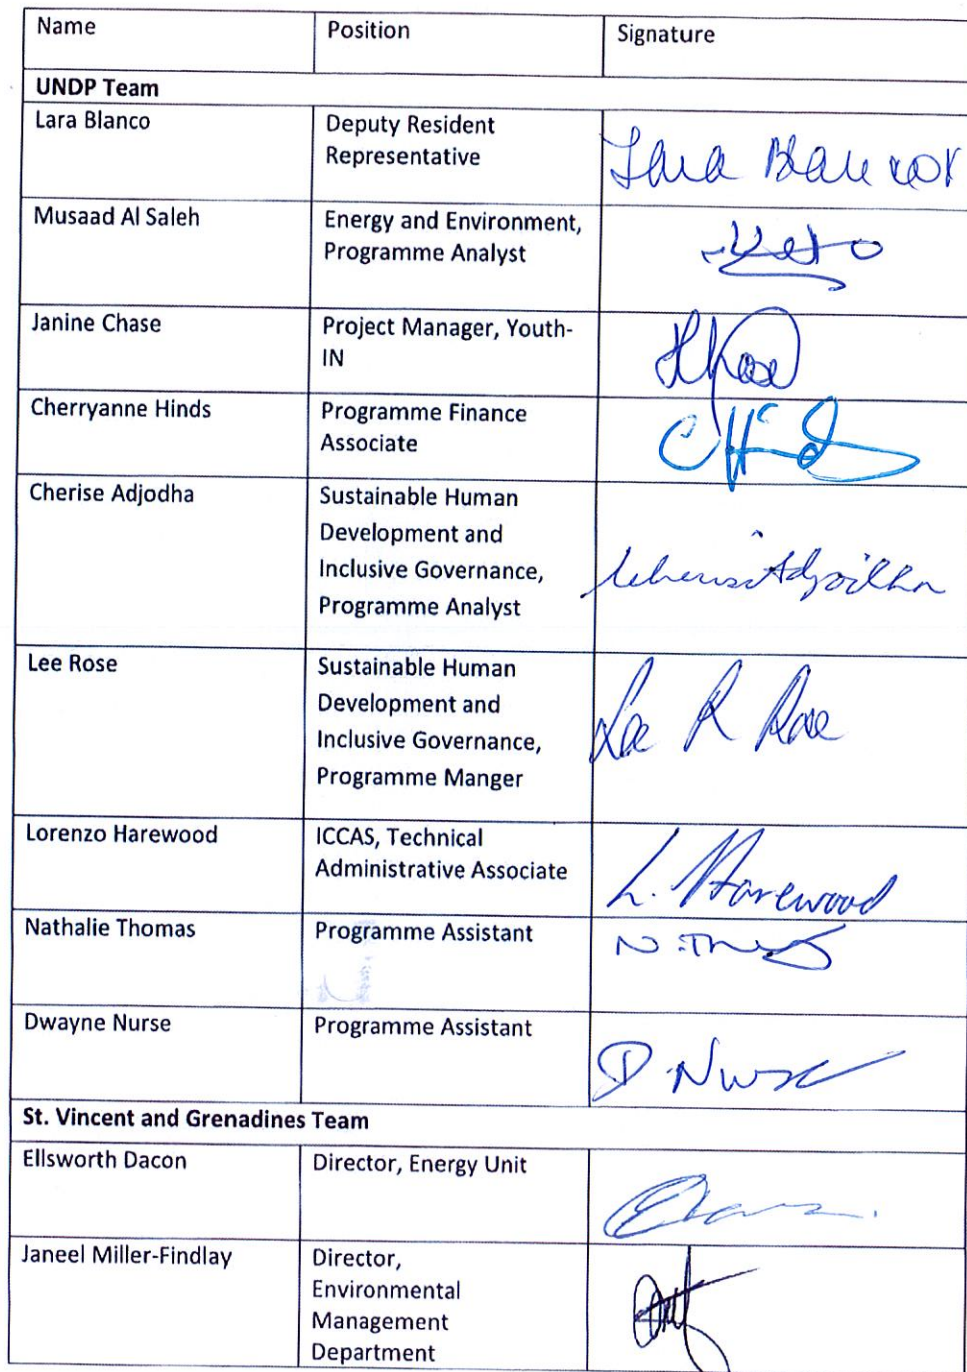 Name Position Signature
UNDP Team
Lara Blanco Deputy Resident
Representative
Lara Blanco
Musaad Al Saleh Energy and Environment,
Programme Analyst
Janine Chase Project Manager, Youth-
IN
Cherryanne Hinds Programme Finance
Associate
C Hinds
Cherise Adjodha Sustainable Human
Development and
Inclusive Governance,
Programme Analyst
Cherise Adjodha
Lee Rose Sustainable Human
Development and
Inclusive Governance,
Programme Manger
Lee R Rose
Lorenzo Harewood ICCAS, Technical
Administrative Associate
L. Harewood
Nathalie Thomas Programme Assistant
Dwayne Nurse Programme Assistant
D. Nurse
St. Vincent and Grenadines Team
Ellsworth Dacon Director, Energy Unit
Janeel Miller-Findlay Director,
Environmental
Management
Department